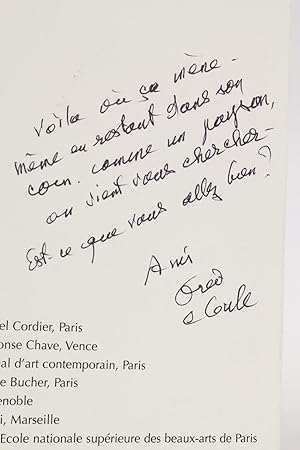 Voilà où ça mène -
même en restant dans son
coin. comme un paysan,
on vient vous chercher -
Est-ce que vous allez bien?
Fred
el Cordier, Paris
onse Chave, Vence
al d'art contemporain, Paris
e Bucher, Paris
enoble
i, Marseille
Ecole nationale supérieure des beaux-arts de Paris